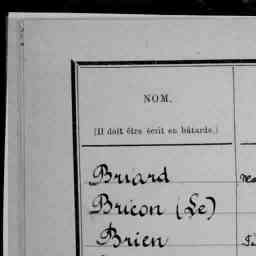 NOM.
(Il doit être écrit en bâtarde.)
Briard
Bricon (Le)
Brien